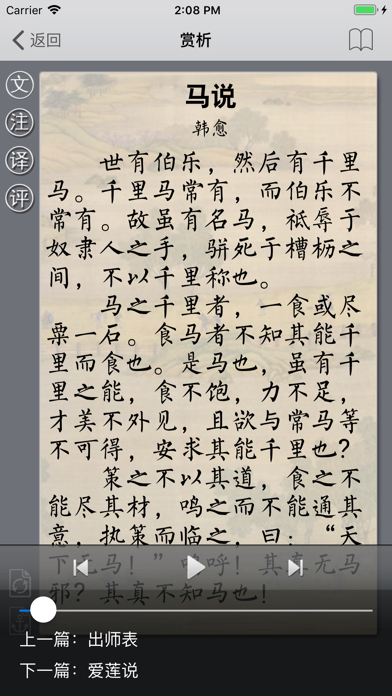 Carrier 2:08 PM
返回 赏析
文
注
译
评
马说
韩愈
世有伯乐，然后有千里
马。千里马常有，而伯乐不
常有。故虽有名马，祗辱于
奴隶人之手，骈死于槽枥之
间，不以千里称也。
马之千里者，一食或尽
粟一石。食马者不知其能千
里而食也。是马也，虽有千
里之能，食不饱，力不足，
才美不外见，且欲与常马等
不可得，安求其能千里也？
策之不以其道，食之不
能尽其材，鸣之而不能通其
意，执策而临之，曰：“天
下无马！”呜呼！其真无马
邪？其真不知马也！
上一篇：出师表
下一篇：爱莲说